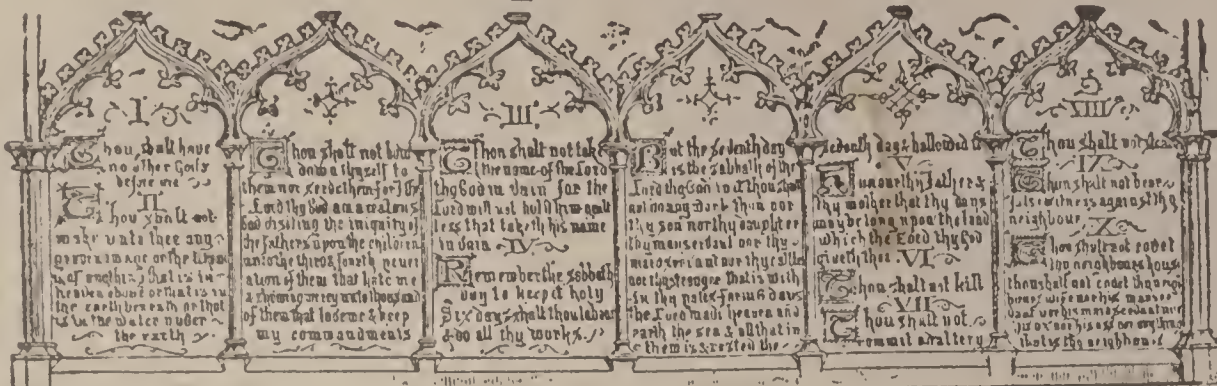 I
Thou shalt have
no other Gods
before me
II
Thou shalt not
make unto thee any
graven image or the liken
s of anything that is in
heaven above or that is in
the earth beneath or that
is in the water under
the earth
Thou shalt not bow
down thyself to
them nor serve them for I the
Lord thy God am a jealous
God visiting the iniquity of
the fathers upon the children
unto the third & fourth gener
ation of them that hate me
& shewing mercy unto thousand
of them that love me & keep
my commandments
III
Thou shalt not tak
the name of the Lord
thy God in vain for the
Lord will not hold him guilt
less that taketh his name
in vain IV
Remember the sabbath
day to keep it holy
Six days shalt thou labour
& do all thy works
But the seventh day
is the sabbath of the
Lord thy God in it thou shalt
not do any work thou nor
thy son nor thy daughter
thy manservant nor thy
maidservant nor thy cattle
nor thy stranger that is with
in thy gates for in 6 days
the Lord made heaven and
earth the sea & all that in
them is & rested the
seventh day & hallowed it
V
Honour thy father &
thy mother that thy days
may be long upon the land
which the Lord thy God
giveth thee VI
Thou shalt not kill
VII
Thou shalt not
commit adultery
VIII
Thou shalt not steal
IX
Thou shalt not bear
false witness against thy
neighbour X
Thou shalt not covet
thy neighbours hous
thou shalt not covet thy neigh
bours wife nor his manser
vant nor his maidservant nor
his ox nor his ass or anything
that is thy neighbours